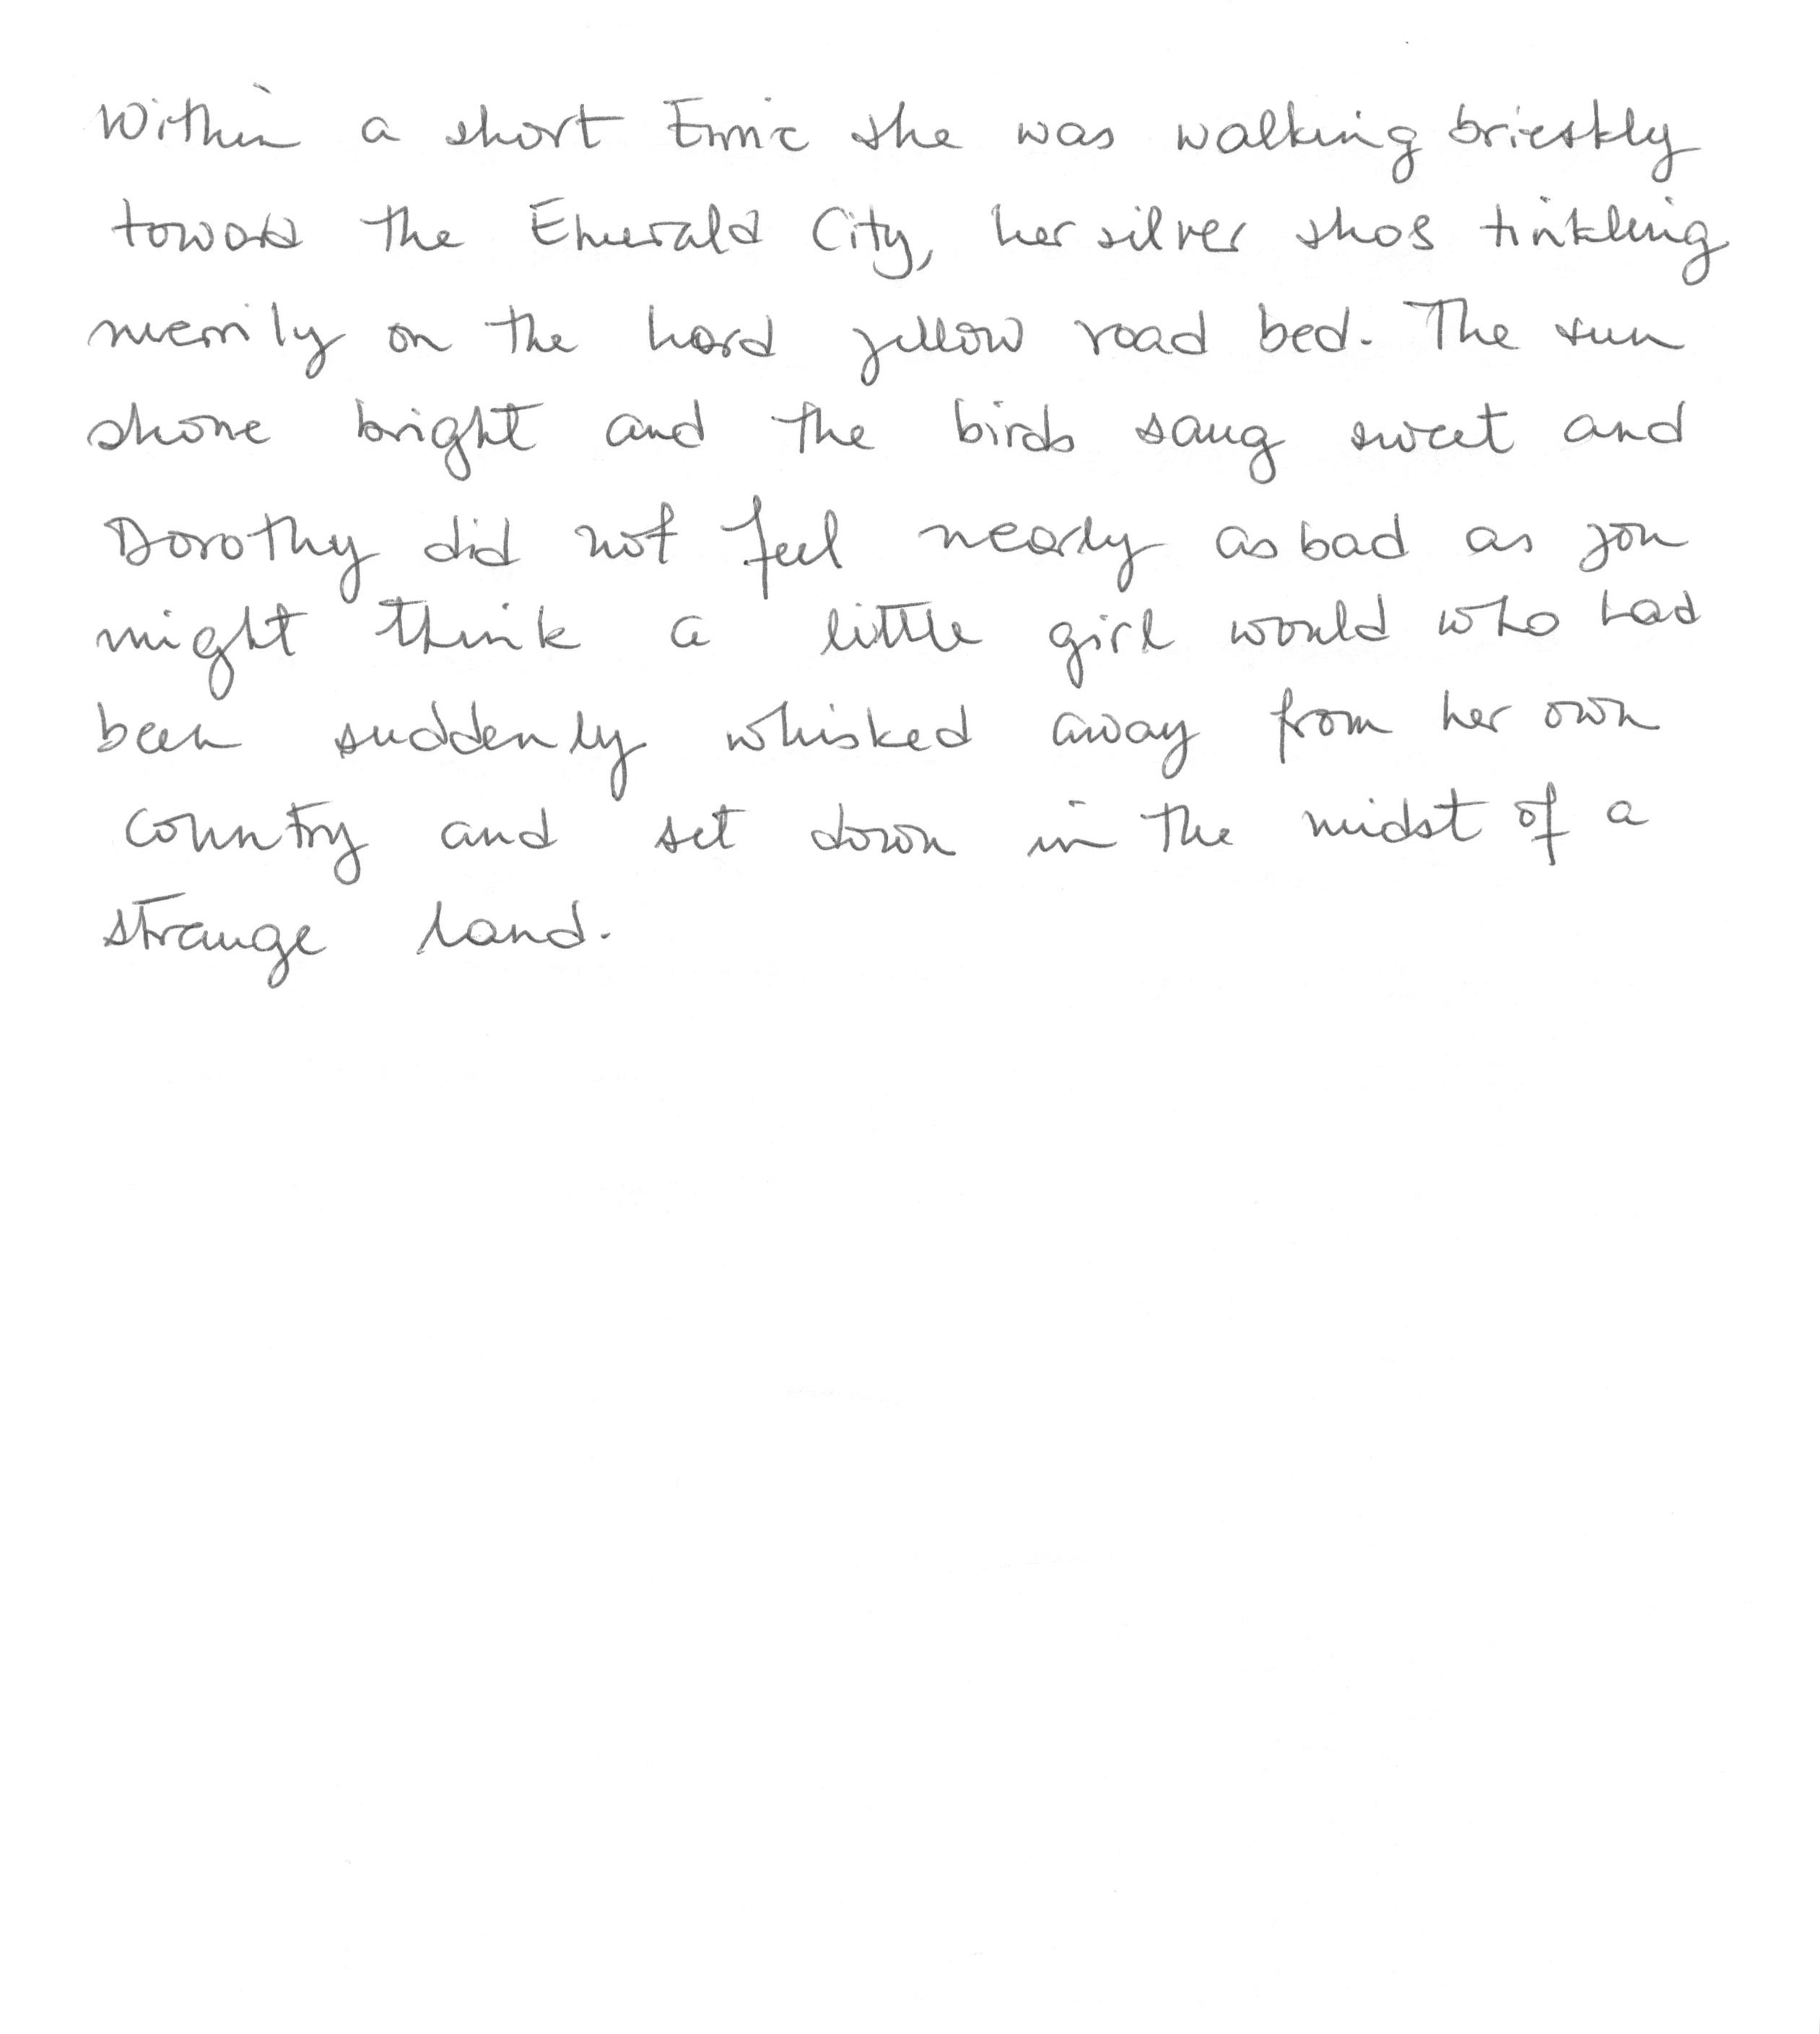 Within a short time she was walking brieskly
toward the Emerald City, her silver shos tinkling
merrily on the hard yellow road bed. The sun
shone bright and the birds sang sweet and
Dorothy did not feel nearly as bad as you
might think a little girl would who had
been suddenly whisked away from her own
country and set down in the midst of a
strange land.